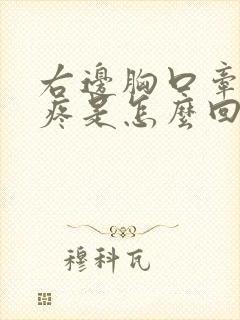 右邊胸口牽
疼是怎麼回
穆科瓦